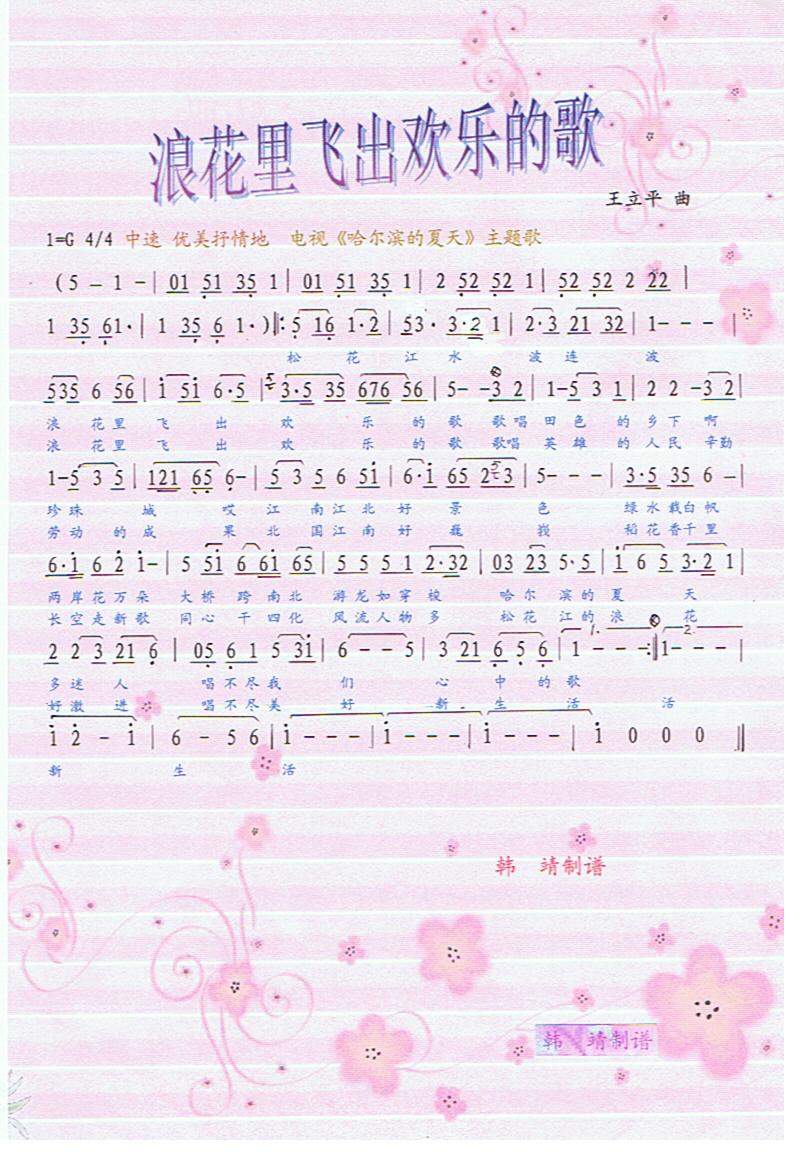 浪花里飞出欢乐的歌
王立平 曲
1=G 4/4 中速 优美抒情地 电视《哈尔滨的夏天》主题歌
(5 - 1 - | 01 51 35 1 | 01 51 35 1 | 2 52 52 1 | 52 52 2 22 |
1 35 61· | 1 35 6 1· )‖: 5 16 1·2 | 53· 3·2 1 | 2·3 21 32 | 1- - - |
松 花 江 水 波 连 波
535 6 56 | i 5i 6·5 | 3·5 35 676 56 | 5- -3 2 | 1-5 3 1 | 2 2 -3 2 |
浪 花 里 飞 出 欢 乐 的 歌 歌唱 田 色 的 乡 下 啊
浪 花 里 飞 出 欢 乐 的 歌 歌唱 英 雄 的 人 民 辛勤
1-5 3 5 | 121 65 6- | 5 3 5 6 5i | 6·i 65 253 | 5- - - | 3·5 35 6 - |
珍珠 城 哎 江 南江 北 好 景 色 绿水载白帆
劳动 的 成 果 北 国江 南 好 巍 峩 稻花香千里
6·i 62 i- | 5 5i 6 6i 65 | 5 5 5 1 2·32 | 03 23 5·5 | i 6 5 3·2 1 |
两岸花万朵 大桥 跨南北 游龙如穿梭 哈尔 滨的夏 天
长空走新歌 同心 干四化 风流人物多 松花 江的浪 花
2 2 3 21 6 | 05 6 1 5 3i | 6 - - 5 | 3 21 6 5 6 | 1 - - - :‖ 1- - - |
1. 2.
多 迷 人 唱不尽我 们 心 中 的 歌
好 激 进 唱不尽美 好 新 生 活 活
i 2 - i | 6 - 5 6 | i - - - | i - - - | i - - - | i 0 0 0 ‖
新 生 活
韩 靖制谱
韩 靖制谱